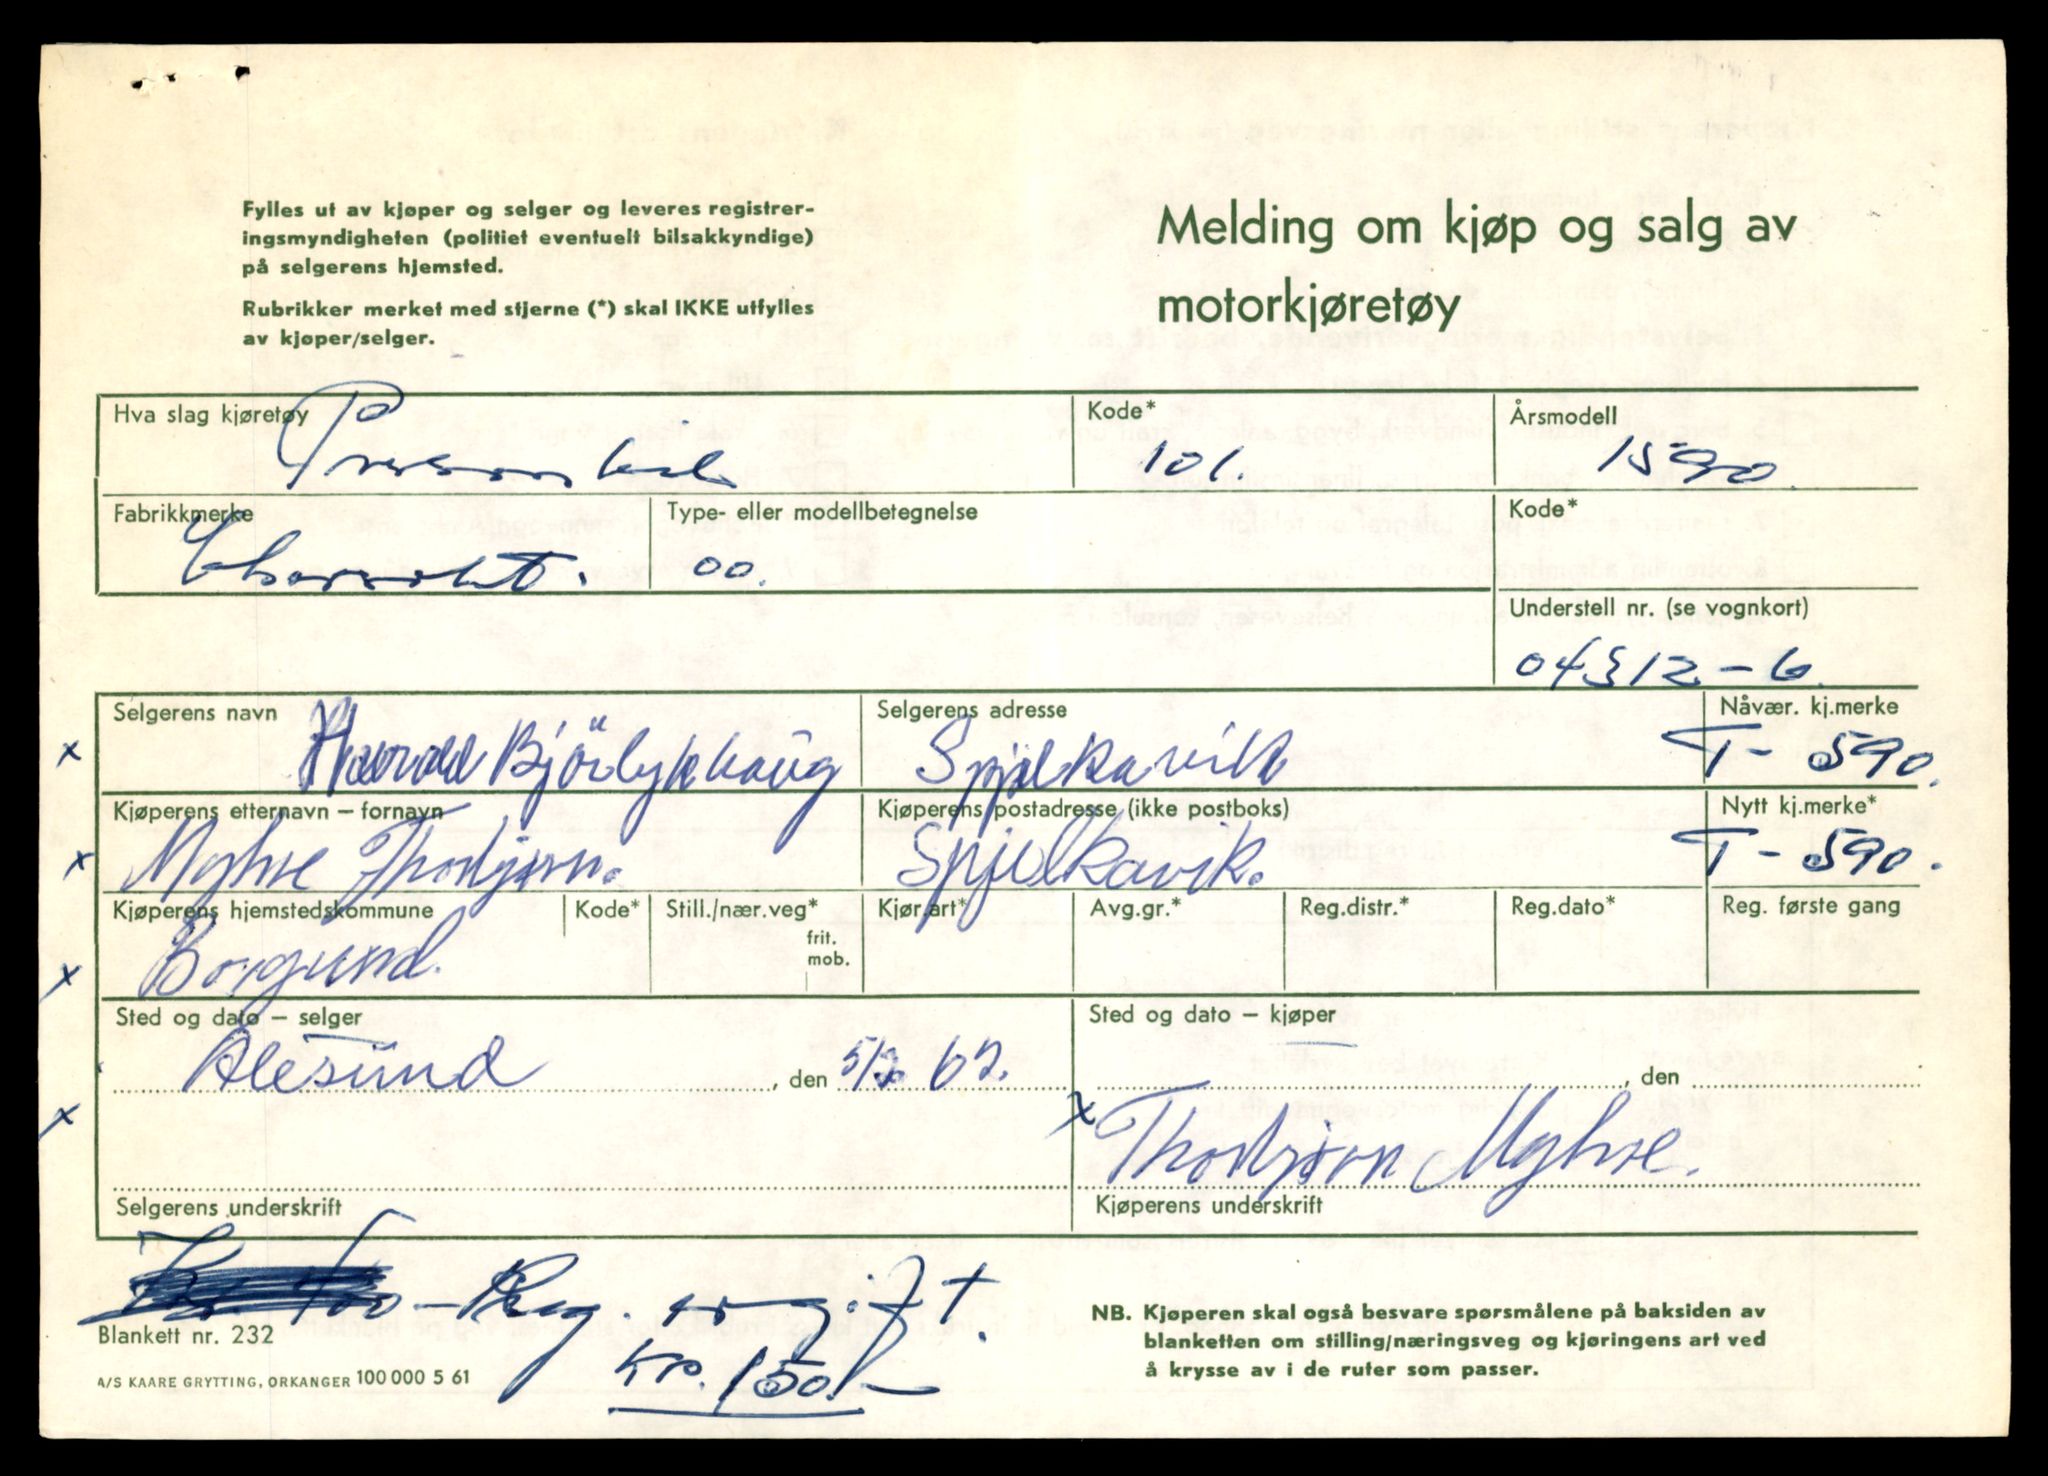 Fylles ut av kjøper og selger og leveres registrer-
ingsmyndigheten (politiet eventuelt bilsakkyndige)
på selgerens hjemsted.
Rubrikker merket med stjerne (*) skal IKKE utfylles
av kjøper/selger.
Melding om kjøp og salg av
motorkjøretøy
Hva slag kjøretøy Personbil Kode* 101. Årsmodell 1590.
Fabrikkmerke Chevrolet. Type- eller modellbetegnelse 00. Kode*
Understell nr. (se vognkort)
04312-6
Selgerens navn Harald Bjørlykhaug Selgerens adresse Spjelkavik Nåvær. kj.merke T-590.
x
Kjøperens etternavn – fornavn Myhre Thorbjørn. Kjøperens postadresse (ikke postboks) Spjelkavik. Nytt kj.merke* T-590.
x
Kjøperens hjemstedskommune Borgund. Kode* Still./nær.veg* frit. mob. Kjør.art* Avg.gr.* Reg.distr.* Reg.dato* Reg. første gang
x
Sted og dato – selger Sted og dato – kjøper
Ålesund , den 5/2 62. , den
x x Thorbjørn Myhre.
Selgerens underskrift Kjøperens underskrift
Reg. avgift.
kr. 150/-
Blankett nr. 232
A/S KAARE GRYTTING, ORKANGER 100 000 5 61
NB. Kjøperen skal også besvare spørsmålene på baksiden av
blanketten om stilling/næringsveg og kjøringens art ved
å krysse av i de ruter som passer.